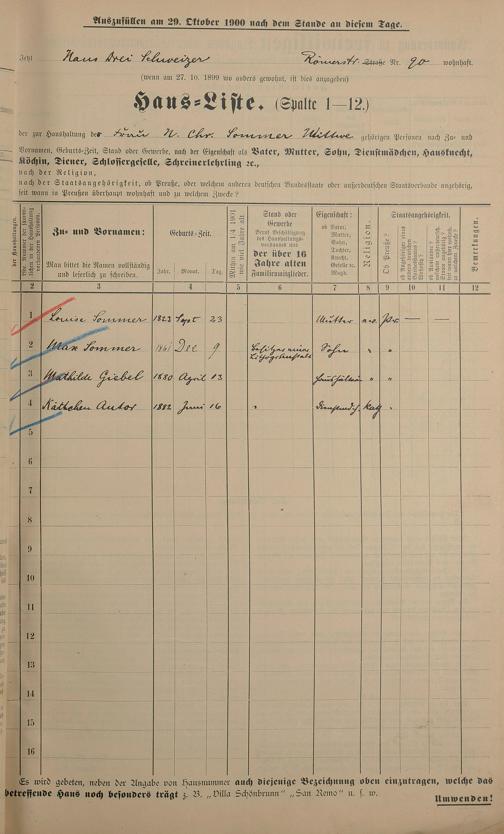 Auszufüllen am 29. Oktober 1900 nach dem Stande an diesem Tage.
Jetzt Haus Drei Schweizer Römerstr. Straße Nr. 90 wohnhaft.
(wenn am 27. 10. 1899 wo anders gewohnt, ist dies anzugeben)
Haus-Liste. (Spalte 1—12.)
der zur Haushaltung des Frau N. Chr. Sommer Wittwe gehörigen Personen nach Zu- und
Vornamen, Geburts-Zeit, Stand oder Gewerbe, nach der Eigenschaft als Vater, Mutter, Sohn, Dienstmädchen, Hausknecht,
Köchin, Diener, Schlossergeselle, Schreinerlehrling ꝛc.,
nach der Religion,
nach der Staatsangehörigkeit, ob Preuße, oder welchem anderen deutschen Bundesstaate oder außerdeutschen Staatsverbande angehörig,
seit wann in Preußen überhaupt wohnhaft und zu welchem Zwecke?
Zu- und Vornamen:
Man bittet die Namen vollständig
und leserlich zu schreiben.
Geburts-Zeit.
Jahr. Monat. Tag.
Mithin am 1/4 1901
wie viel Jahre alt.
Stand oder
Gewerbe
der über 16
Jahre alten
Familienmitglieder.
Eigenschaft:
ob Vater,
Mutter,
Sohn,
Tochter,
Knecht,
Geselle ꝛc.
Magd.
Religion.
Staatsangehörigkeit.
Ob Preuße?
Bemerkungen.
2 3 4 5 6 7 8 9 10 11 12
1 Louise Sommer 1823 Sept 23 Mutter ev. Pr. — —
2 Max Sommer Dec 9 Sohn " "
3 Mathilde Giebel 1880 April 13 " "
4 Käthchen Autor 1882 Juni 16 " kath "
5
6
7
8
9
10
11
12
13
14
15
16
Es wird gebeten, neben der Angabe von Hausnummer auch diejenige Bezeichnung oben einzutragen, welche das
betreffende Haus noch besonders trägt z. B. „Villa Schönbrunn“ „San Remo“ u. s. w.
Umwenden!